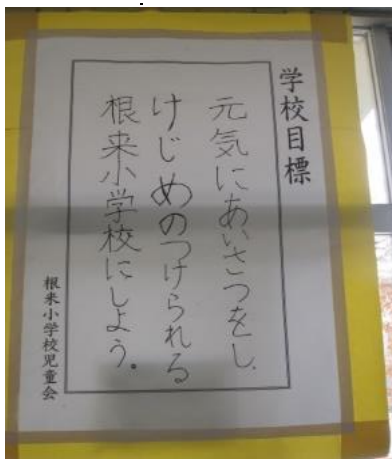 学校目標
元気にあいさつをし、
けじめのつけられる
根来小学校にしよう。
根来小学校児童会